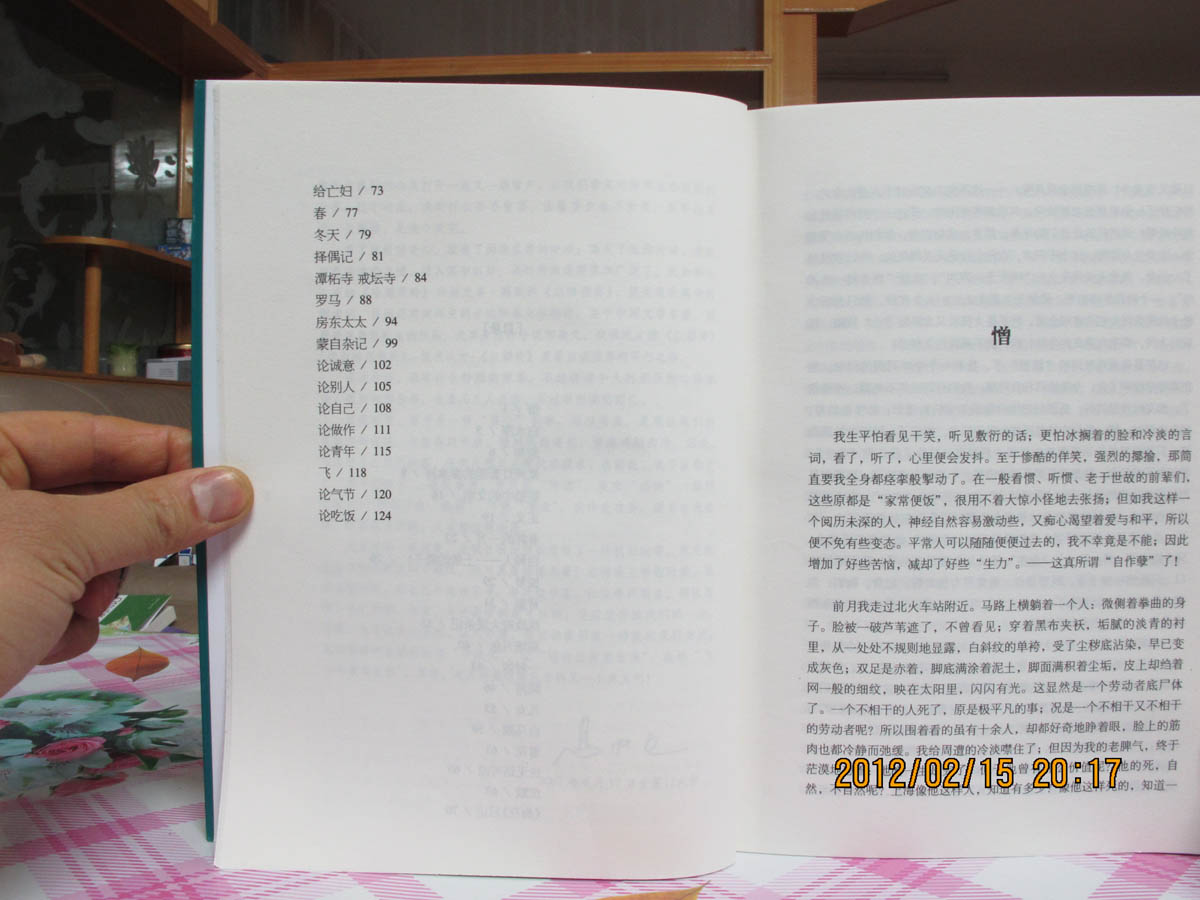 给亡妇 / 73
春 / 77
冬天 / 79
择偶记 / 81
潭柘寺 戒坛寺 / 84
罗马 / 88
房东太太 / 94
蒙自杂记 / 99
论诚意 / 102
论别人 / 105
论自己 / 108
论做作 / 111
论青年 / 115
飞 / 118
论气节 / 120
论吃饭 / 124
憎
我生平怕看见干笑，听见敷衍的话；更怕冰搁着的脸和冷淡的言
词，看了，听了，心里便会发抖。至于惨酷的佯笑，强烈的揶揄，那简
直要我全身都痉挛般掣动了。在一般看惯、听惯、老于世故的前辈们，
这些原都是“家常便饭”，很用不着大惊小怪地去张扬；但如我这样一
个阅历未深的人，神经自然容易激动些，又痴心渴望着爱与和平，所以
便不免有些变态。平常人可以随随便便过去的，我不幸竟是不能；因此
增加了好些苦恼，减却了好些“生力”。——这真所谓“自作孽”了！
前月我走过北火车站附近。马路上横躺着一个人：微侧着拳曲的身
子。脸被一破芦苇遮了，不曾看见；穿着黑布夹袄，垢腻的淡青的衬
里，从一处处不规则地显露，白斜纹的单袴，受了尘秽底沾染，早已变
成灰色；双足是赤着，脚底满涂着泥土，脚面满积着尘垢，皮上却绉着
网一般的细纹，映在太阳里，闪闪有光。这显然是一个劳动者底尸体
了。一个不相干的人死了，原是极平凡的事；况是一个不相干又不相干
的劳动者呢？所以围着看的虽有十余人，却都好奇地睁着眼，脸上的筋
肉也都冷静而弛缓。我给周遭的冷淡噤住了；但因为我的老脾气，终于
茫漠地
他的死，自
然，不自然呢？上海像他这样人，知道有多少？像他这样死的，知道一
2012/02/15 20:17